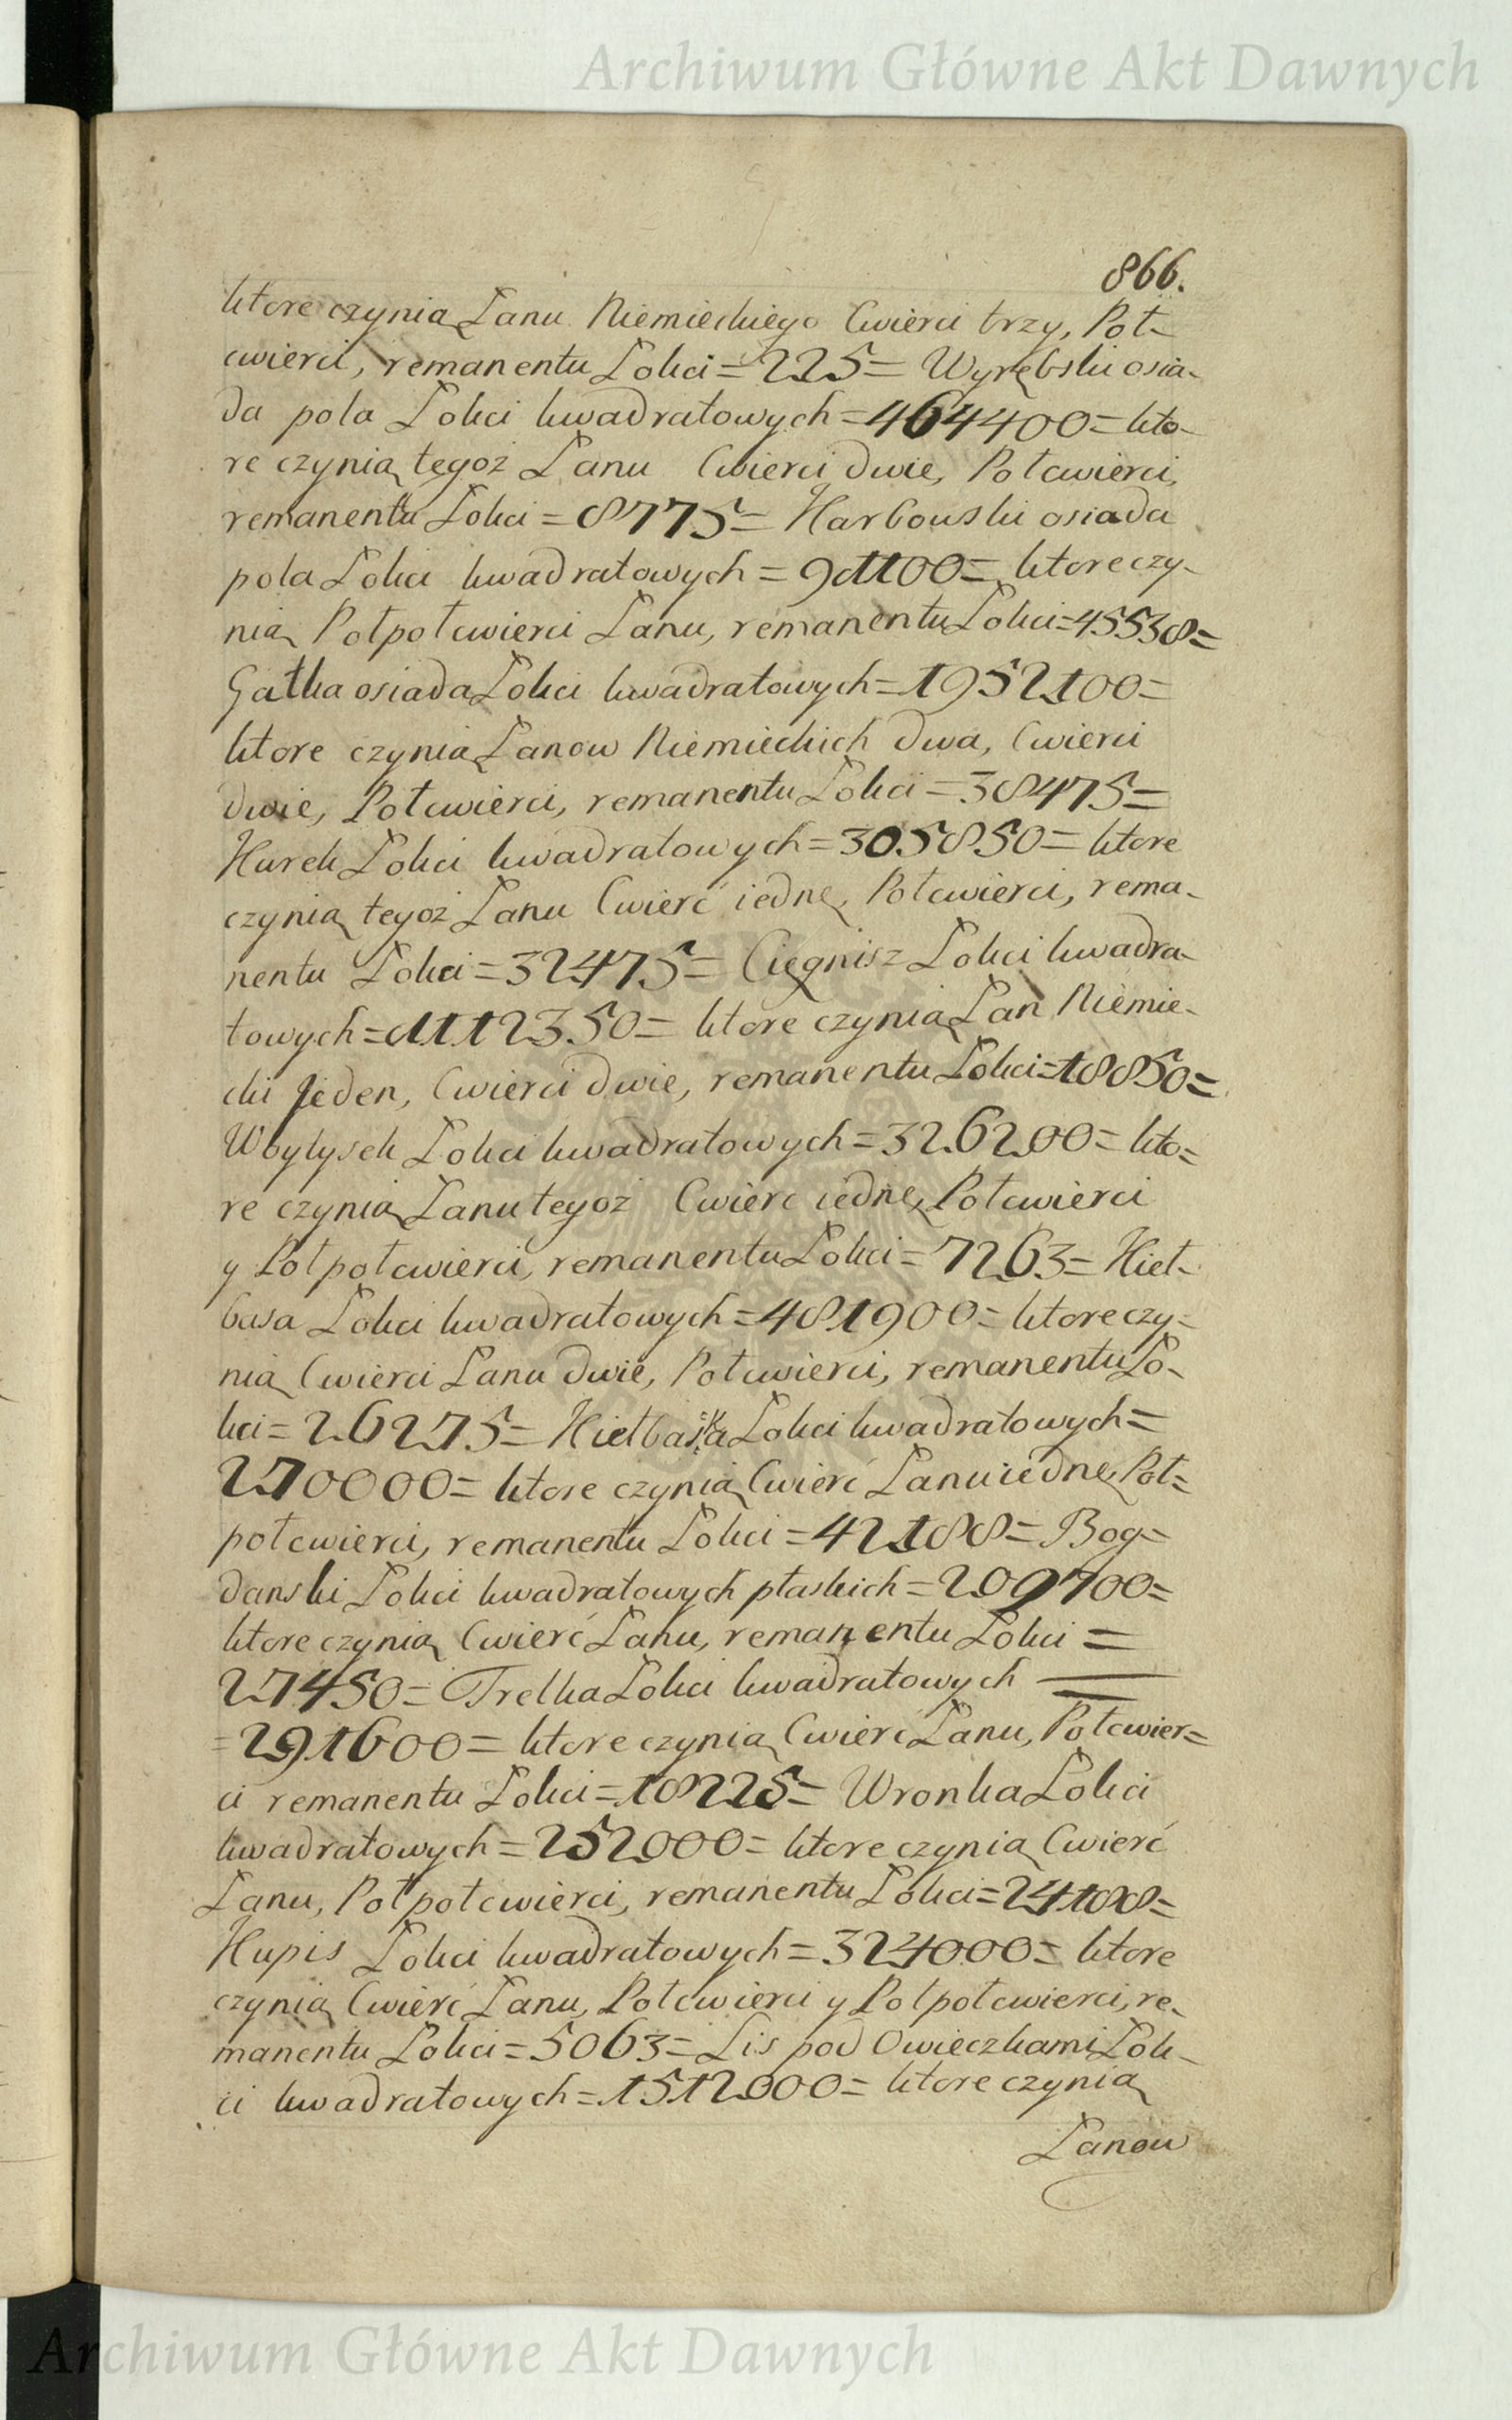 Archiwum Główne Akt Dawnych
866.
ktore czynią Łanu Niemieckiego Cwierci trzy, Poł-
cwierci, remanentu Łokci = 225 = Wyrębski osia-
da pola Łokci kwadratowych = 464400 = kto-
re czynią tegoż Łanu Cwierci dwie, Połcwierci,
remanentu Łokci = 8775 = Karbowski osiada
pola Łokci kwadratowych = 91100 = ktore czy-
nią Połpołcwierci Łanu, remanentu Łokci = 45538 =
Gałka osiada Łokci kwadratowych = 1952100 =
ktore czynią Łanow Niemieckich dwa, Cwierci
dwie, Połcwierci, remanentu Łokci = 38475 =
Kurek Łokci kwadratowych = 305850 = ktore
czynią tegoż Łanu Cwierć iednę, Połcwierci, rema-
nentu Łokci = 32475 = Cięgnisz Łokci kwadra-
towych = 1112350 = ktore czynią Łan Niemie-
cki Jeden, Cwierci dwie, remanentu Łokci = 18850 =
Wbylysek Łokci kwadratowych = 326200 = kto=
re czynią Łanu tegoż Cwierc iednę, Połcwierci
y Połpołcwierci, remanentu Łokci = 7263 = Kieł-
basa Łokci kwadratowych = 481900 = ktore czy=
nią Cwierci Łanu dwie, Połcwierci, remanentu Ło-
kci = 26275 = Kiełbaska Łokci kwadratowych =
270000 = ktore czynią Cwierć Łanu iednę, Poł=
połcwierci, remanentu Łokci = 42188 = Bog=
danski Łokci kwadratowych płaskich = 209700 =
ktore czynią Cwierć Łanu, remanentu Łokci =
27450 = Trelka Łokci kwadratowych
= 291600 = ktore czynią Cwierć Łanu, Połcwier=
ci remanentu Łokci = 18225 = Wronka Łokci
kwadratowych = 252000 = ktore czynią Cwierć
Łanu, Połpołcwierci, remanentu Łokci = 24188 =
Kupis Łokci kwadratowych = 324000 = ktore
czynią Cwierć Łanu, Połcwierci y Połpołcwierci, re-
manentu Łokci = 5063 = Lis pod Owieczkami Łok-
ci kwadratowych = 1512000 = ktore czynią
Łanow
Archiwum Główne Akt Dawnych